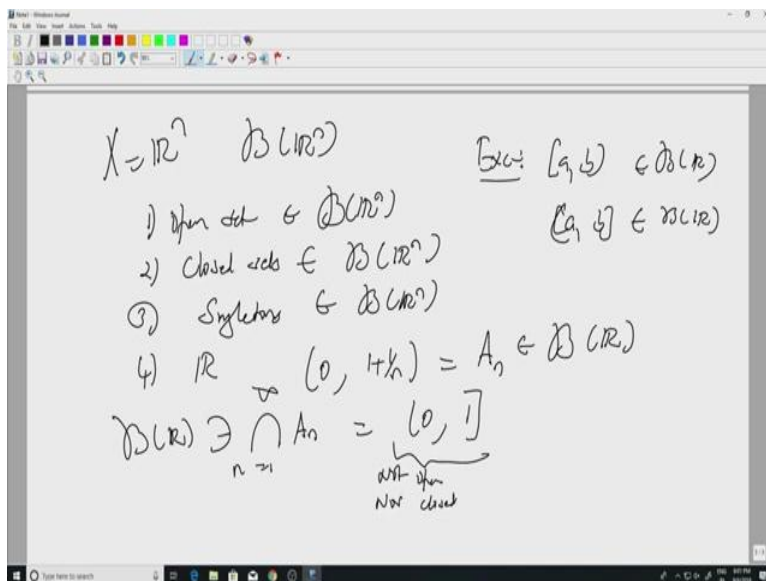 Note1 - Windows Journal
File Edit View Insert Actions Tools Help
X = ℝⁿ   𝓑(ℝⁿ)
1) Open set ∈ 𝓑(ℝⁿ)
2) Closed sets ∈ 𝓑(ℝⁿ)
③ Singletons ∈ 𝓑(ℝⁿ)
4) ℝ   (0, 1+1/n) = Aₙ ∈ 𝓑(ℝ)
𝓑(ℝ) ∋ ⋂_{n=1}^{∞} Aₙ = (0, 1]
not open
Nor closed
Exc: [a, b) ∈ 𝓑(ℝ)
[a, b] ∈ 𝓑(ℝ)
Type here to search